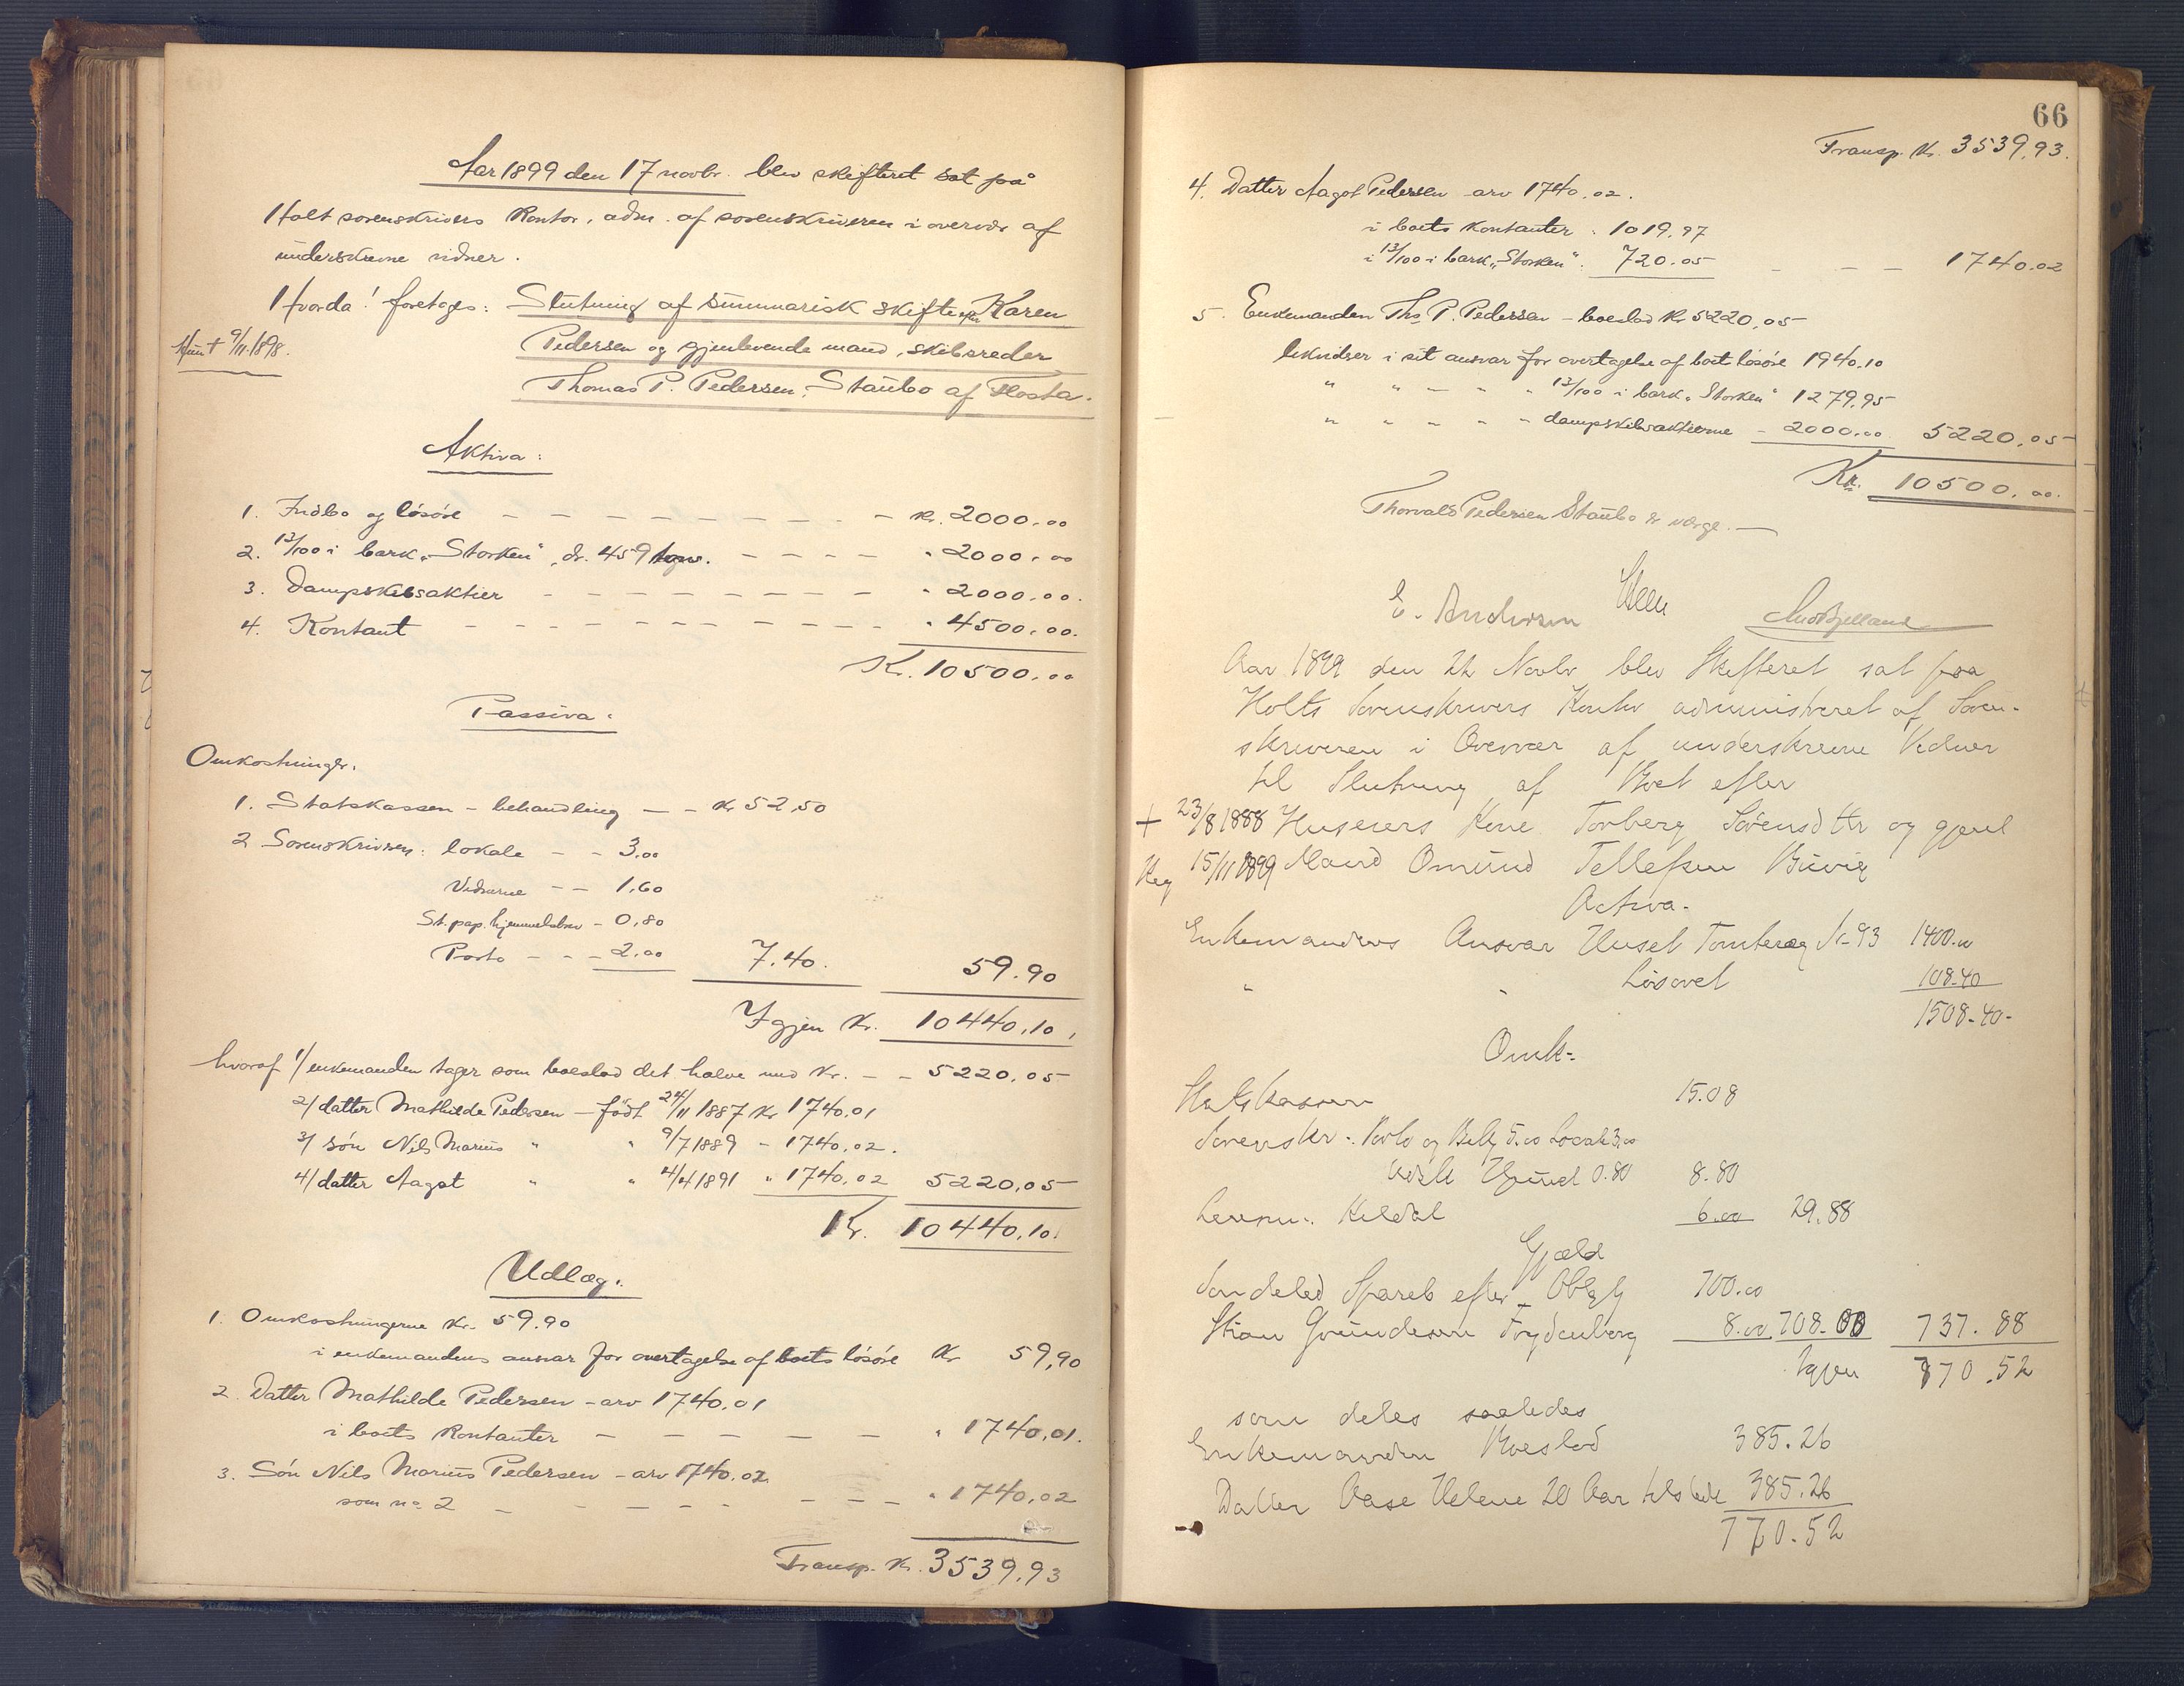 Aar 1899 den 17 novbr. blev skifteret sat på
Holt sorenskrivers Kontor, adm. af sorenskriveren i overvær af
underskrevne vidner.
Hvorda! foretages: Slutning af summarisk skifte efter Karen
Pedersen og gjenlevende mand, skibsreder
Thomas P. Pedersen, Staubo af Flosta.
Hun † 9/11.1898.
Aktiva:
1. Indbo og løsøre — — — — kr. 2000.00
2. 13/100 i bark „Storken“, dr. 459 tons. — — — „ 2000.00
3. Dampskibsaktier — — — — „ 2000.00.
4. Kontant — — — — „ 4500.00.
Kr. 10500.00
Passiva:
Omkostninger.
1. Statskassen – behandling — – Kr 52,50
2 Sorenskriveren: lokale – – 3.00
Vidnerne – – 1.60
St. pap. hjemmelsbrev – 0.80
Porto – – – 2.00 7.40. 59.90
Igjen Kr. 10440.10.
hvoraf 1/ enkemanden tager som boeslod det halve med Kr. – – 5220.05
2/ datter Mathilde Pedersen – født 24/11 1887 Kr 1740.01
3/ søn Nils Marius „ „ 9/7 1889 – 1740.02.
4/ datter Aagot „ „ 4/4 1891 „ 1740.02 5220.05
Kr. 10440.10.
Udlæg:
1. Omkostningerne Kr. 59.90
i enkemandens ansvar for overtagelse af boets løsøre Kr 59,90
2. Datter Mathilde Pedersen – arv 1740.01
i boets Kontanter — — — — — „ 1740.01.
3. Søn Nils Marius Pedersen – arv 1740.02.
som no 2 — — — — — „ 1740,02
Transp. Kr. 3539.93
66
Transp. Kr. 3539.93.
4. Datter Aagot Pedersen – arv 1740.02.
i boets kontanter : 1019.97
i 13/100 i bark „Storken“: 720.05 – – – 1740.02
5. Enkemanden Ths P. Pedersen – boeslod Kr 5220,05
likvidser i sit ansvar for overtagelse af boets løsøre 1940.10
„ „ – „ „ 13/100 i bark „Storken“ 1279.95
„ „ „ „ – dampskibsaktierne – 2000.00 5220.05
Kr. 10500.00.
Thorvald Pedersen Staubo er værge. —
E. Andersen
Aar 1899 den 22 Novbr blev Skifteret sat paa
Holts Sorenskrivers Kontor administreret af Soren-
skriveren i Overvær af underskrevne Vidner
til Slutning af Boet efter
† 23/8 1888 Huseiers Kone Torberg Sørensdttr og gjenl
Reg 15/11 1899 Mand Omund Tellefsen Buvig
Activa.
Enkemandens Ansvar Huset Tomteræg No 93 1400.00
„ „ Løsøret 108.40
1508.40.
Omk:
Statskassen 15.08
Sorenskr: Porto og Bekg 5.00 Locale 3.00
0.80 8.80
Lensm: Kildal 6.00 29.88
Gjæld
Søndeled Spareb efter Oblig 700.00
Stian Gundersen Frydenberg 8.00 708.00 737.88
Igjen 770.52
som deles saaledes
Enkemanden Boeslod 385.26
Datter Aase Helene 20 Aar tilstede 385.26
770.52